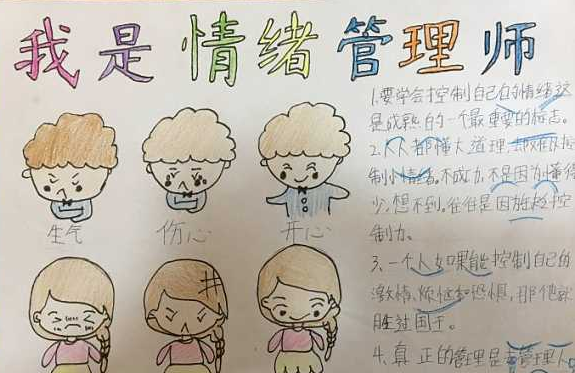 我是情绪管理师
1.要学会控制自己的情绪,这
是成熟的一个最重要的标志。
2.人人都懂大道理,却难控
制小情绪。不成功,不是因为懂得
少,想不到。往往是因为
制力。
3、一个人如果能控制自己的
激情、烦恼和恐惧,那他就
胜过国王。
4.真正的管理是去管理人
生气
伤心
开心